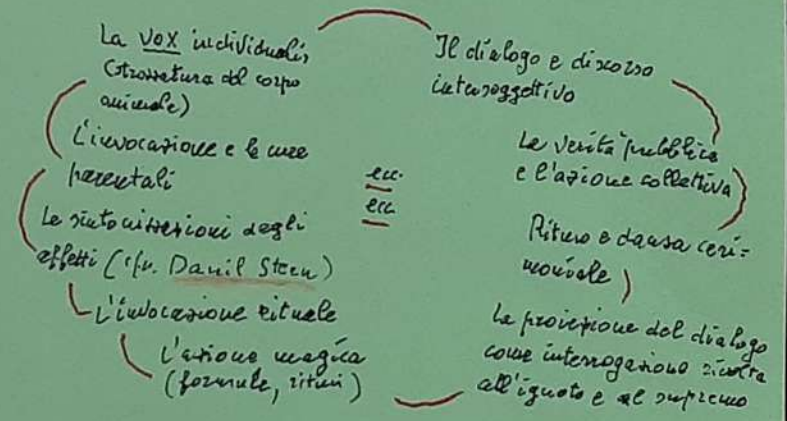 La vox individualis
(strozzatura del corpo
animale)
L'invocazione e le cure
parentali
Le sintonizzazioni degli
affetti (cfr. Danil Stern)
L'invocazione rituale
L'azione magica
(formule, ritmi)
ecc.
ecc
Il dialogo e discorso
intersoggettivo
La verità pubblica
e l'azione collettiva
Ritmo e danza ceri=
moniale
La proiezione del dialogo
come interrogazione rivolta
all'ignoto e al supremo